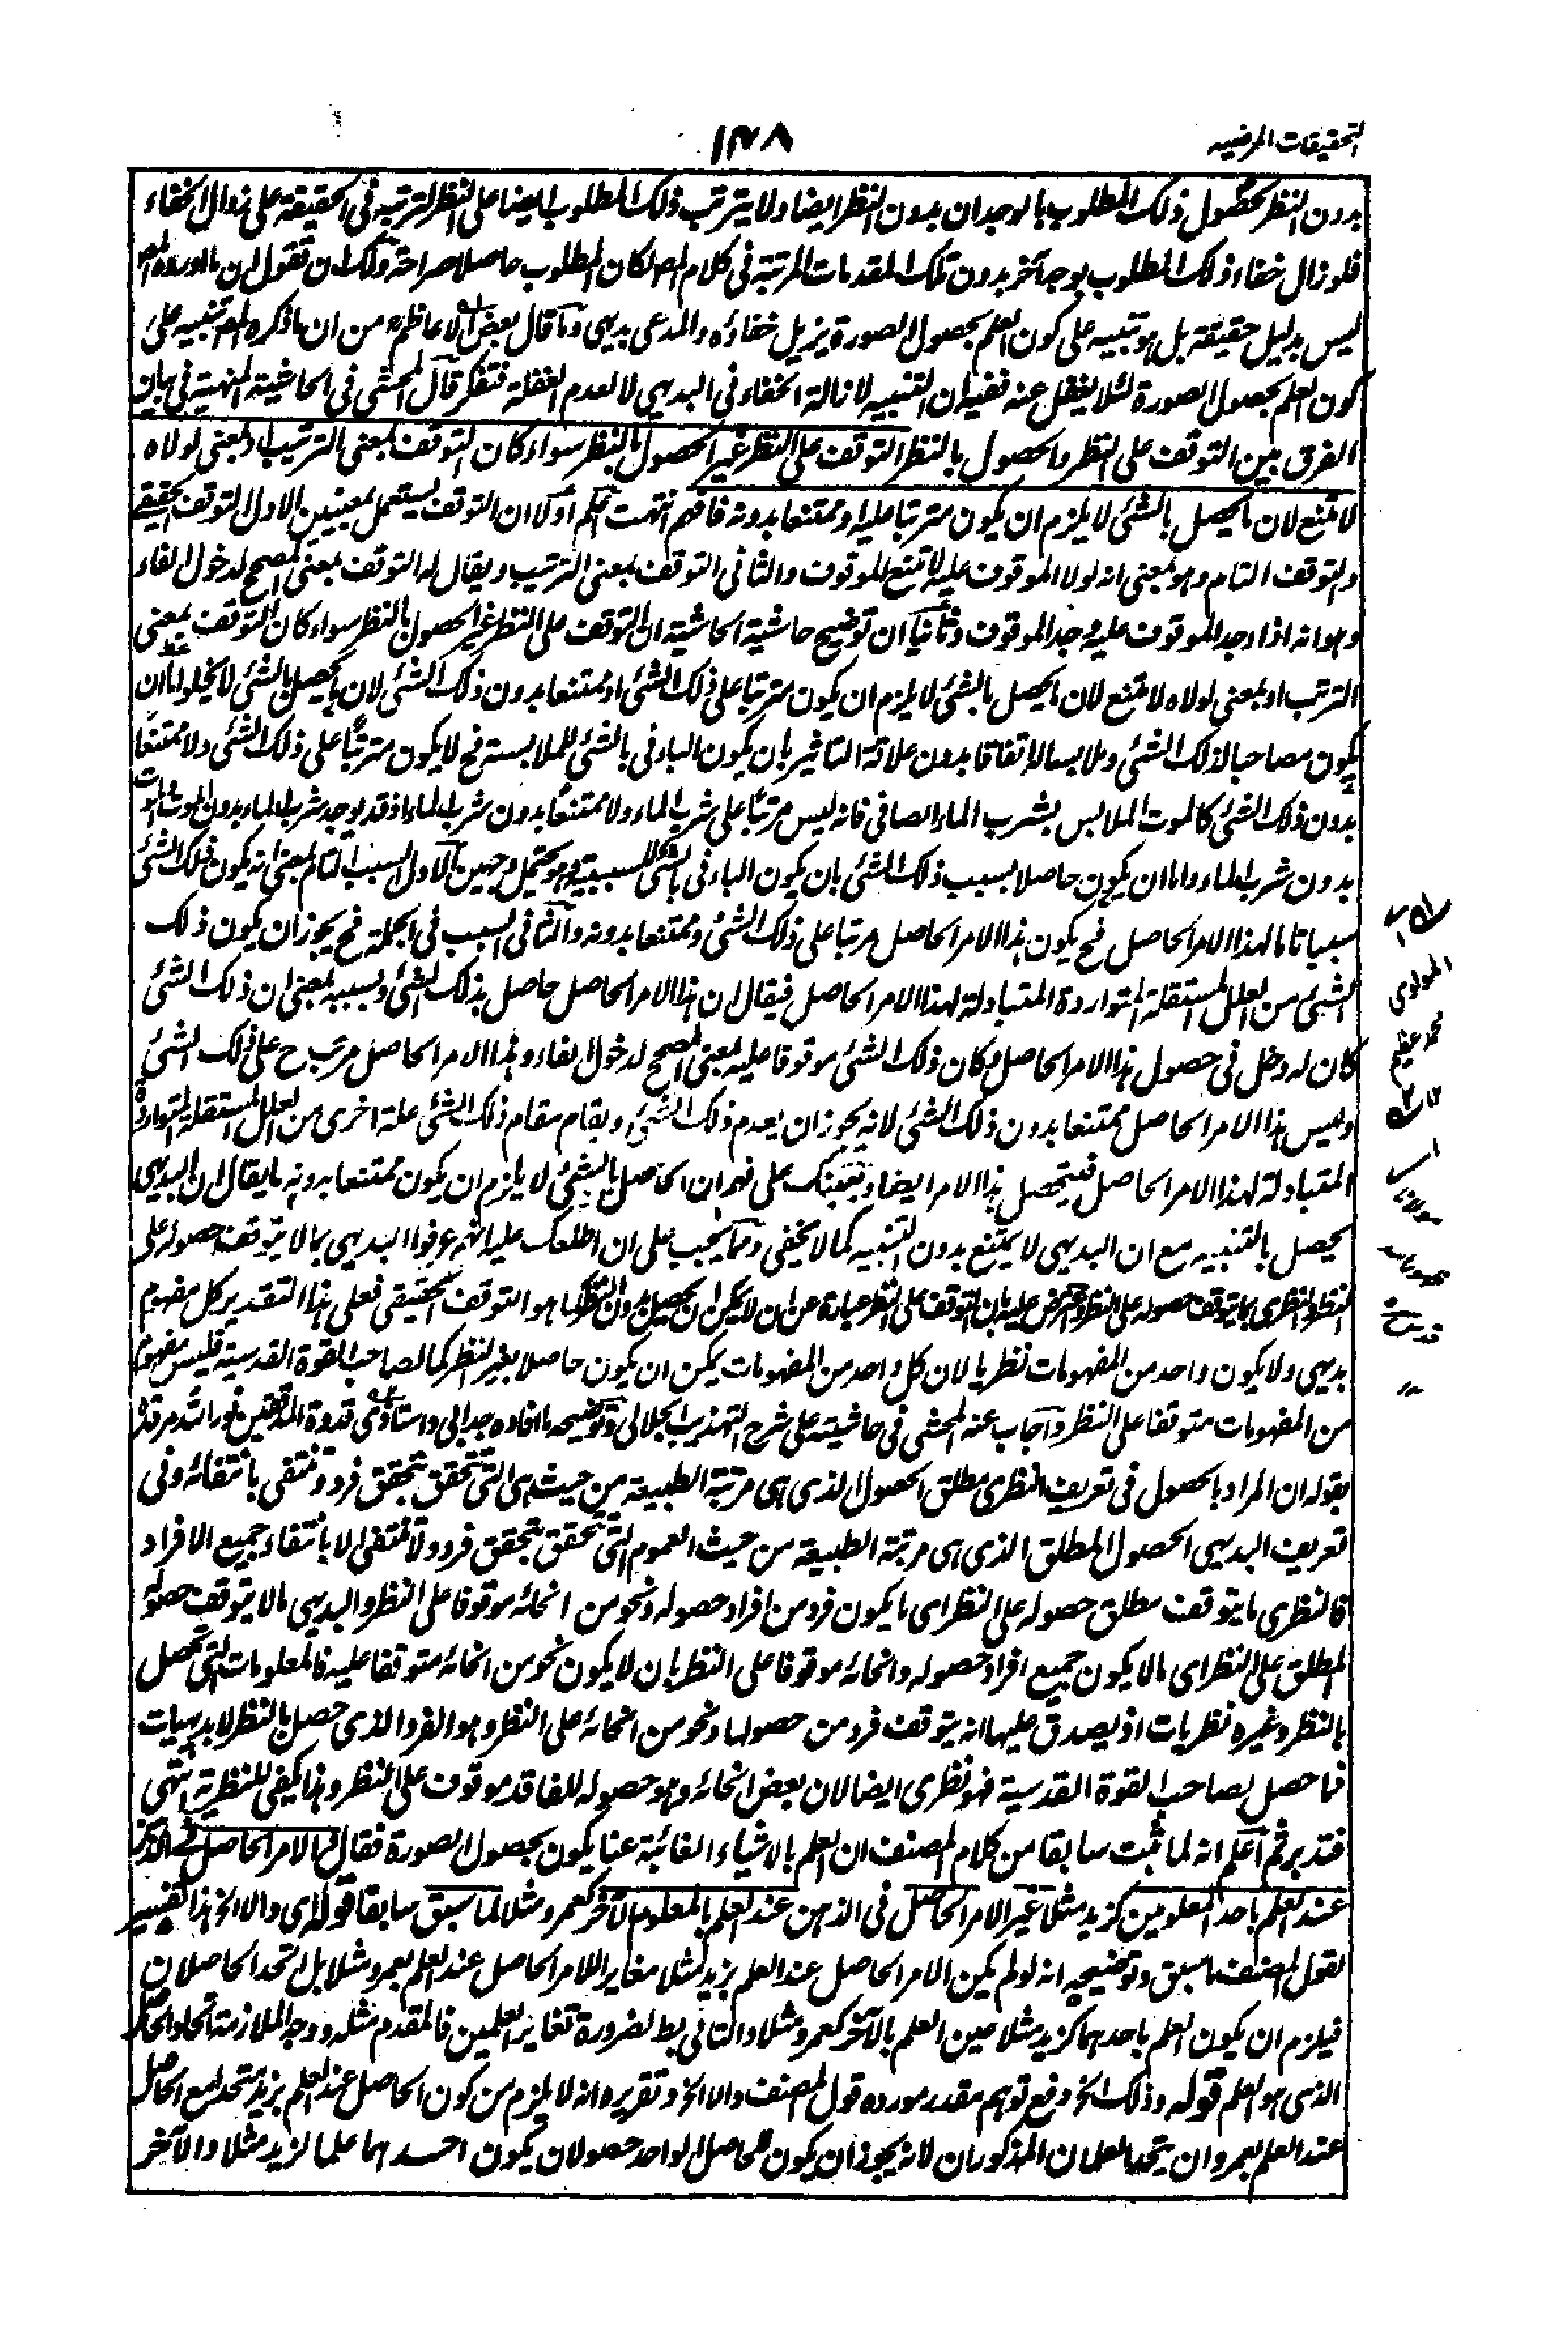 التحقيقات المرضيه
١٣٨
بدون النظر لحصول ذلك المطلوب بالوجدان بدون النظر ايضا ولا يترتب ذلك المطلوب ايضا على النظر لترتبه فى الحقيقة على زوال الخفاء
فلو زال خفاء ذلك المطلوب بوجه آخر بدون تلك المقدمات المرتبة فى كلام المص لكان المطلوب حاصلا صراحة ولك ان تقول ان ما اورده المص
ليس بدليل حقيقة بل هو تنبيه على كون العلم بحصول الصورة يزيل خفاءه والمدعى بديهى وما قال بعض الاعاظم من ان ما ذكره المص تنبيه على
كون العلم بحصول الصورة لئلا يغفل عنه ففيه ان التنبيه لازالة الخفاء فى البديهى لا لعدم الغفلة فتفكر قال المحشى فى الحاشية المنهية فى بيان
الفرق بين التوقف على النظر والحصول بالنظر التوقف على النظر غير الحصول بالنظر سواء كان التوقف بمعنى الترتيب او بمعنى لولاه
لامتنع لان ما يحصل بالشئ لا يلزم ان يكون مترتبا عليه او ممتنعا بدونه فافهم انتهت اعلم اولا ان التوقف يستعمل بمعنيين الاول التوقف الحقيقى
والتوقف التام وهو بمعنى انه لولا الموقوف عليه لامتنع الموقوف والثانى التوقف بمعنى الترتيب ويقال له التوقف بمعنى المصحح لدخول الفاء
وهو انه اذا وجد الموقوف عليه وجد الموقوف وثانيا ان توضيح حاشية الحاشية ان التوقف على النظر غير الحصول بالنظر سواء كان التوقف بمعنى
الترتب او بمعنى لولاه لامتنع لان ما يحصل بالشئ لا يلزم ان يكون مترتبا على ذلك الشئ او ممتنعا بدون ذلك الشئ لان ما يحصل بالشئ لا يخلو اما ان
يكون مصاحبا لذلك الشئ وملابسا له اتفاقا بدون علاقة التاثير بان يكون الباء فى بالشئ للملابسة فح لا يكون مترتبا على ذلك الشئ ولا ممتنعا
بدون ذلك الشئ كالموت الملابس بشرب الماء الصافى فانه ليس مرتبا على شرب الماء ولا ممتنعا بدون شرب الماء اذ قد يوجد شرب الماء بدون الموت والموت
بدون شرب الماء واما ان يكون حاصلا بسبب ذلك الشئ بان يكون الباء فى بالشئ للسببية وهو يحتمل وجهين الاول السبب التام بمعنى انه يكون ذلك الشئ
سببا تاما لهذا الامر الحاصل فح يكون هذا الامر الحاصل مرتبا على ذلك الشئ وممتنعا بدونه والثانى السبب فى الجملة فح يجوز ان يكون ذلك
الشئ من العلل المستقلة المتواردة المتبادلة لهذا الامر الحاصل فيقال ان هذا الامر الحاصل حاصل بذلك الشئ وبسببه بمعنى ان ذلك الشئ
كان له دخل فى حصول هذا الامر الحاصل وكان ذلك الشئ موقوفا عليه بمعنى المصحح لدخول الفاء وهذا الامر الحاصل مرتب ح على ذلك الشئ
وليس هذا الامر الحاصل ممتنعا بدون ذلك الشئ لانه يجوز ان يعدم ذلك الشئ ويقام مقام ذلك الشئ علة اخرى من العلل المستقلة المتواردة
المتبادلة لهذا الامر الحاصل فيتحصل هذا الامر ايضا وينبهك على فهم ان الحاصل بالشئ لا يلزم ان يكون ممتنعا بدونه ما يقال ان البديهى
يحصل بالتنبيه مع ان البديهى لا يمتنع بدون التنبيه كما لا يخفى ومما يجب على ان اطلعك عليه انهم عرفوا البديهى بما لا يتوقف حصوله على
النظر والنظرى بما يتوقف حصوله على النظر واعترض عليه بان التوقف على النظر عبارة عن ان لا يمكن ان يحصل بدون النظر كما هو التوقف الحقيقى فعلى هذا التقدير كل مفهوم
بديهى ولا يكون واحد من المفهومات نظريا لان كل واحد من المفهومات يمكن ان يكون حاصلا بغير النظر كما لصاحب القوة القدسية فليس مفهوم
من المفهومات متوقفا على النظر واجاب عنه المحشى فى حاشيته على شرح التهذيب الجلالى وتوضيحه ما افاده جد ابى واستاذى قدوة المدققين نور الله مرقده
بقوله ان المراد بالحصول فى تعريف النظرى مطلق الحصول الذى هى مرتبة الطبيعة من حيث هى التى تتحقق بتحقق فرد وتنتفى بانتفائه وفى
تعريف البديهى الحصول المطلق الذى هى مرتبة الطبيعة من حيث العموم التى تتحقق بتحقق فرد ولا تنتفى الا بانتفاء جميع الافراد
فالنظرى ما يتوقف مطلق حصوله على النظر اى ما يكون فرد من افراد حصوله ونحو من انحائه موقوفا على النظر والبديهى ما لا يتوقف حصوله
المطلق على النظر اى ما لا يكون جميع افراد حصوله وانحائه موقوفا على النظر بان لا يكون نحو من انحائه متوقفا عليه فالمعلومات التى تحصل
بالنظر وغيره نظريات اذ يصدق عليها انه يتوقف فرد من حصولها ونحو من انحائه على النظر وهو الفرد الذى حصل بالنظر لا بديهيات
فما حصل لصاحب القوة القدسية فهو نظرى ايضا لان بعض انحائه وهو حصوله للفاقد موقوف على النظر وهذا يكفى للنظرية انتهى
فتدبر ثم اعلم انه لما ثبت سابقا من كلام المصنف ان العلم بالاشياء الغائبة عنا يكون بحصول الصورة فقال فالامر الحاصل فى الذهن
عند العلم باحد المعلومين كزيد مثلا غير الامر الحاصل فى الذهن عند العلم بالمعلوم الآخر كعمرو مثلا لما سبق سابقا قوله اى والا الخ هذا تفسير
لقول المصنف ما سبق وتوضيحه انه لو لم يكن الامر الحاصل عند العلم بزيد مثلا مغايرا للامر الحاصل عند العلم بعمرو مثلا بل اتحد الحاصلان
فيلزم ان يكون العلم باحدهما كزيد مثلا عين العلم بالآخر كعمرو مثلا والتالى بط لضرورة تغاير العلمين فالمقدم مثله ووجه الملازمة اتحاد الحاصل
الذى هو العلم قوله وذلك الخ دفع توهم مقدر مورده قول المصنف والا الخ وتقريره انه لا يلزم من كون الحاصل عند العلم بزيد متحدا مع الحاصل
عند العلم بعمرو ان يتحد العلمان المذكوران لانه يجوز ان يكون للحاصل الواحد حصولان يكون احدهما علما لزيد مثلا والآخر
المولوى
محمد عظيم